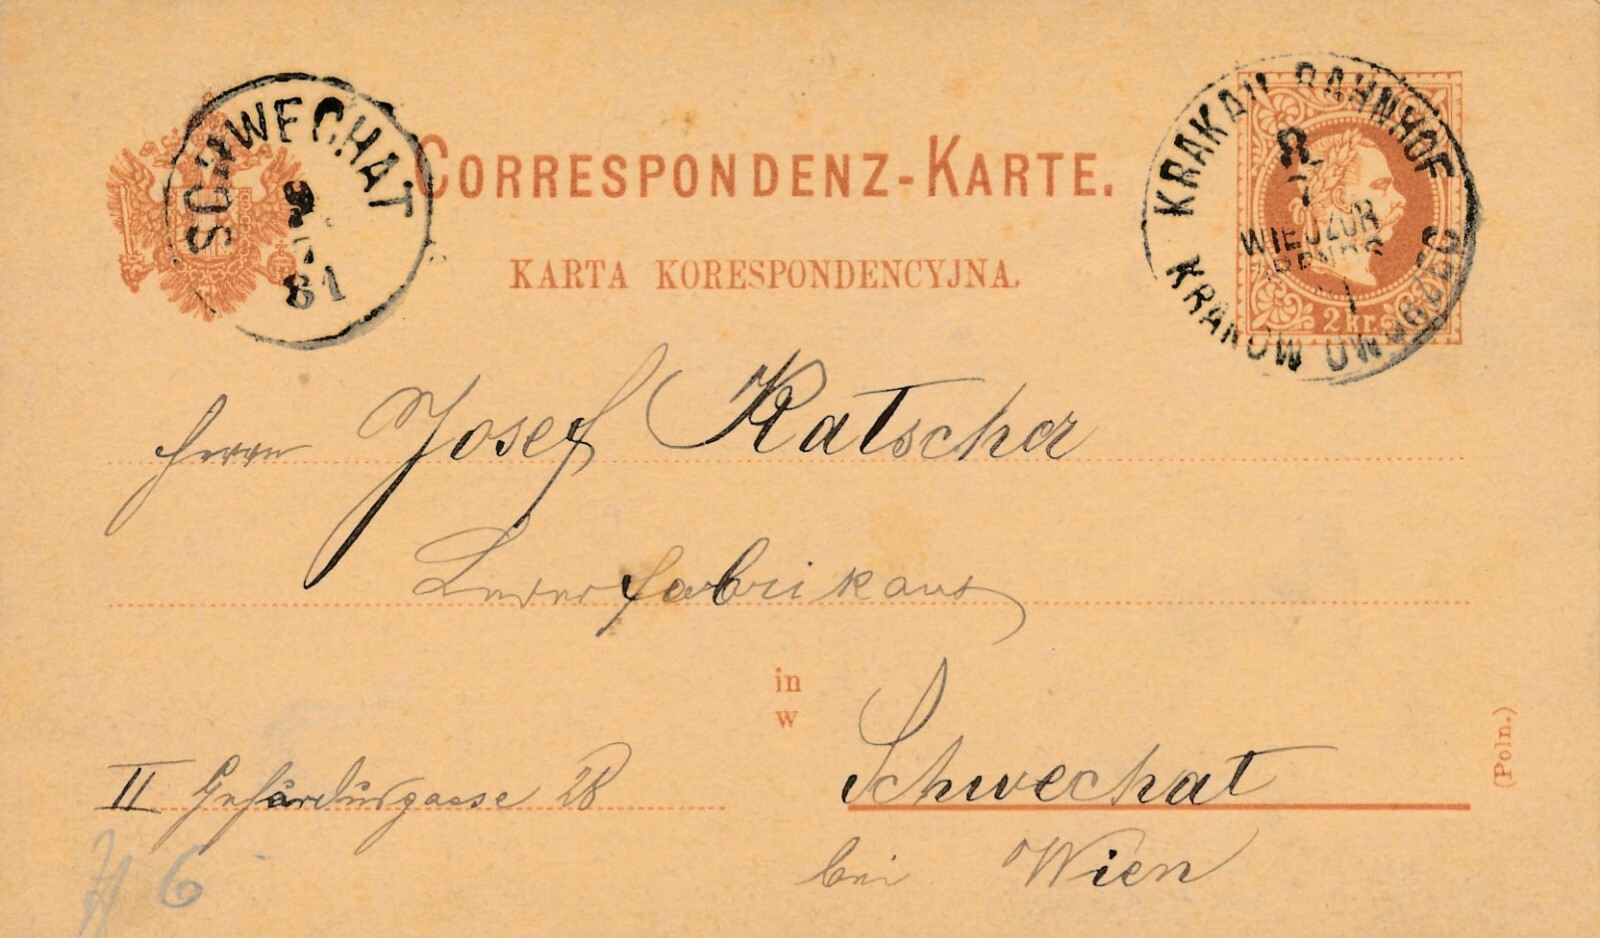 SCHWECHAT
9
7
81
CORRESPONDENZ-KARTE.
KARTA KORESPONDENCYJNA.
KRAKAU BAHNHOF
KRAKOW DWORZEC
8
7
WIECZÓR
ABENDS
2 kr.
Herrn Josef Katscher
Lederfabrikant
in
w
Schwechat
bei Wien
II
gasse 28
(Poln.)
6